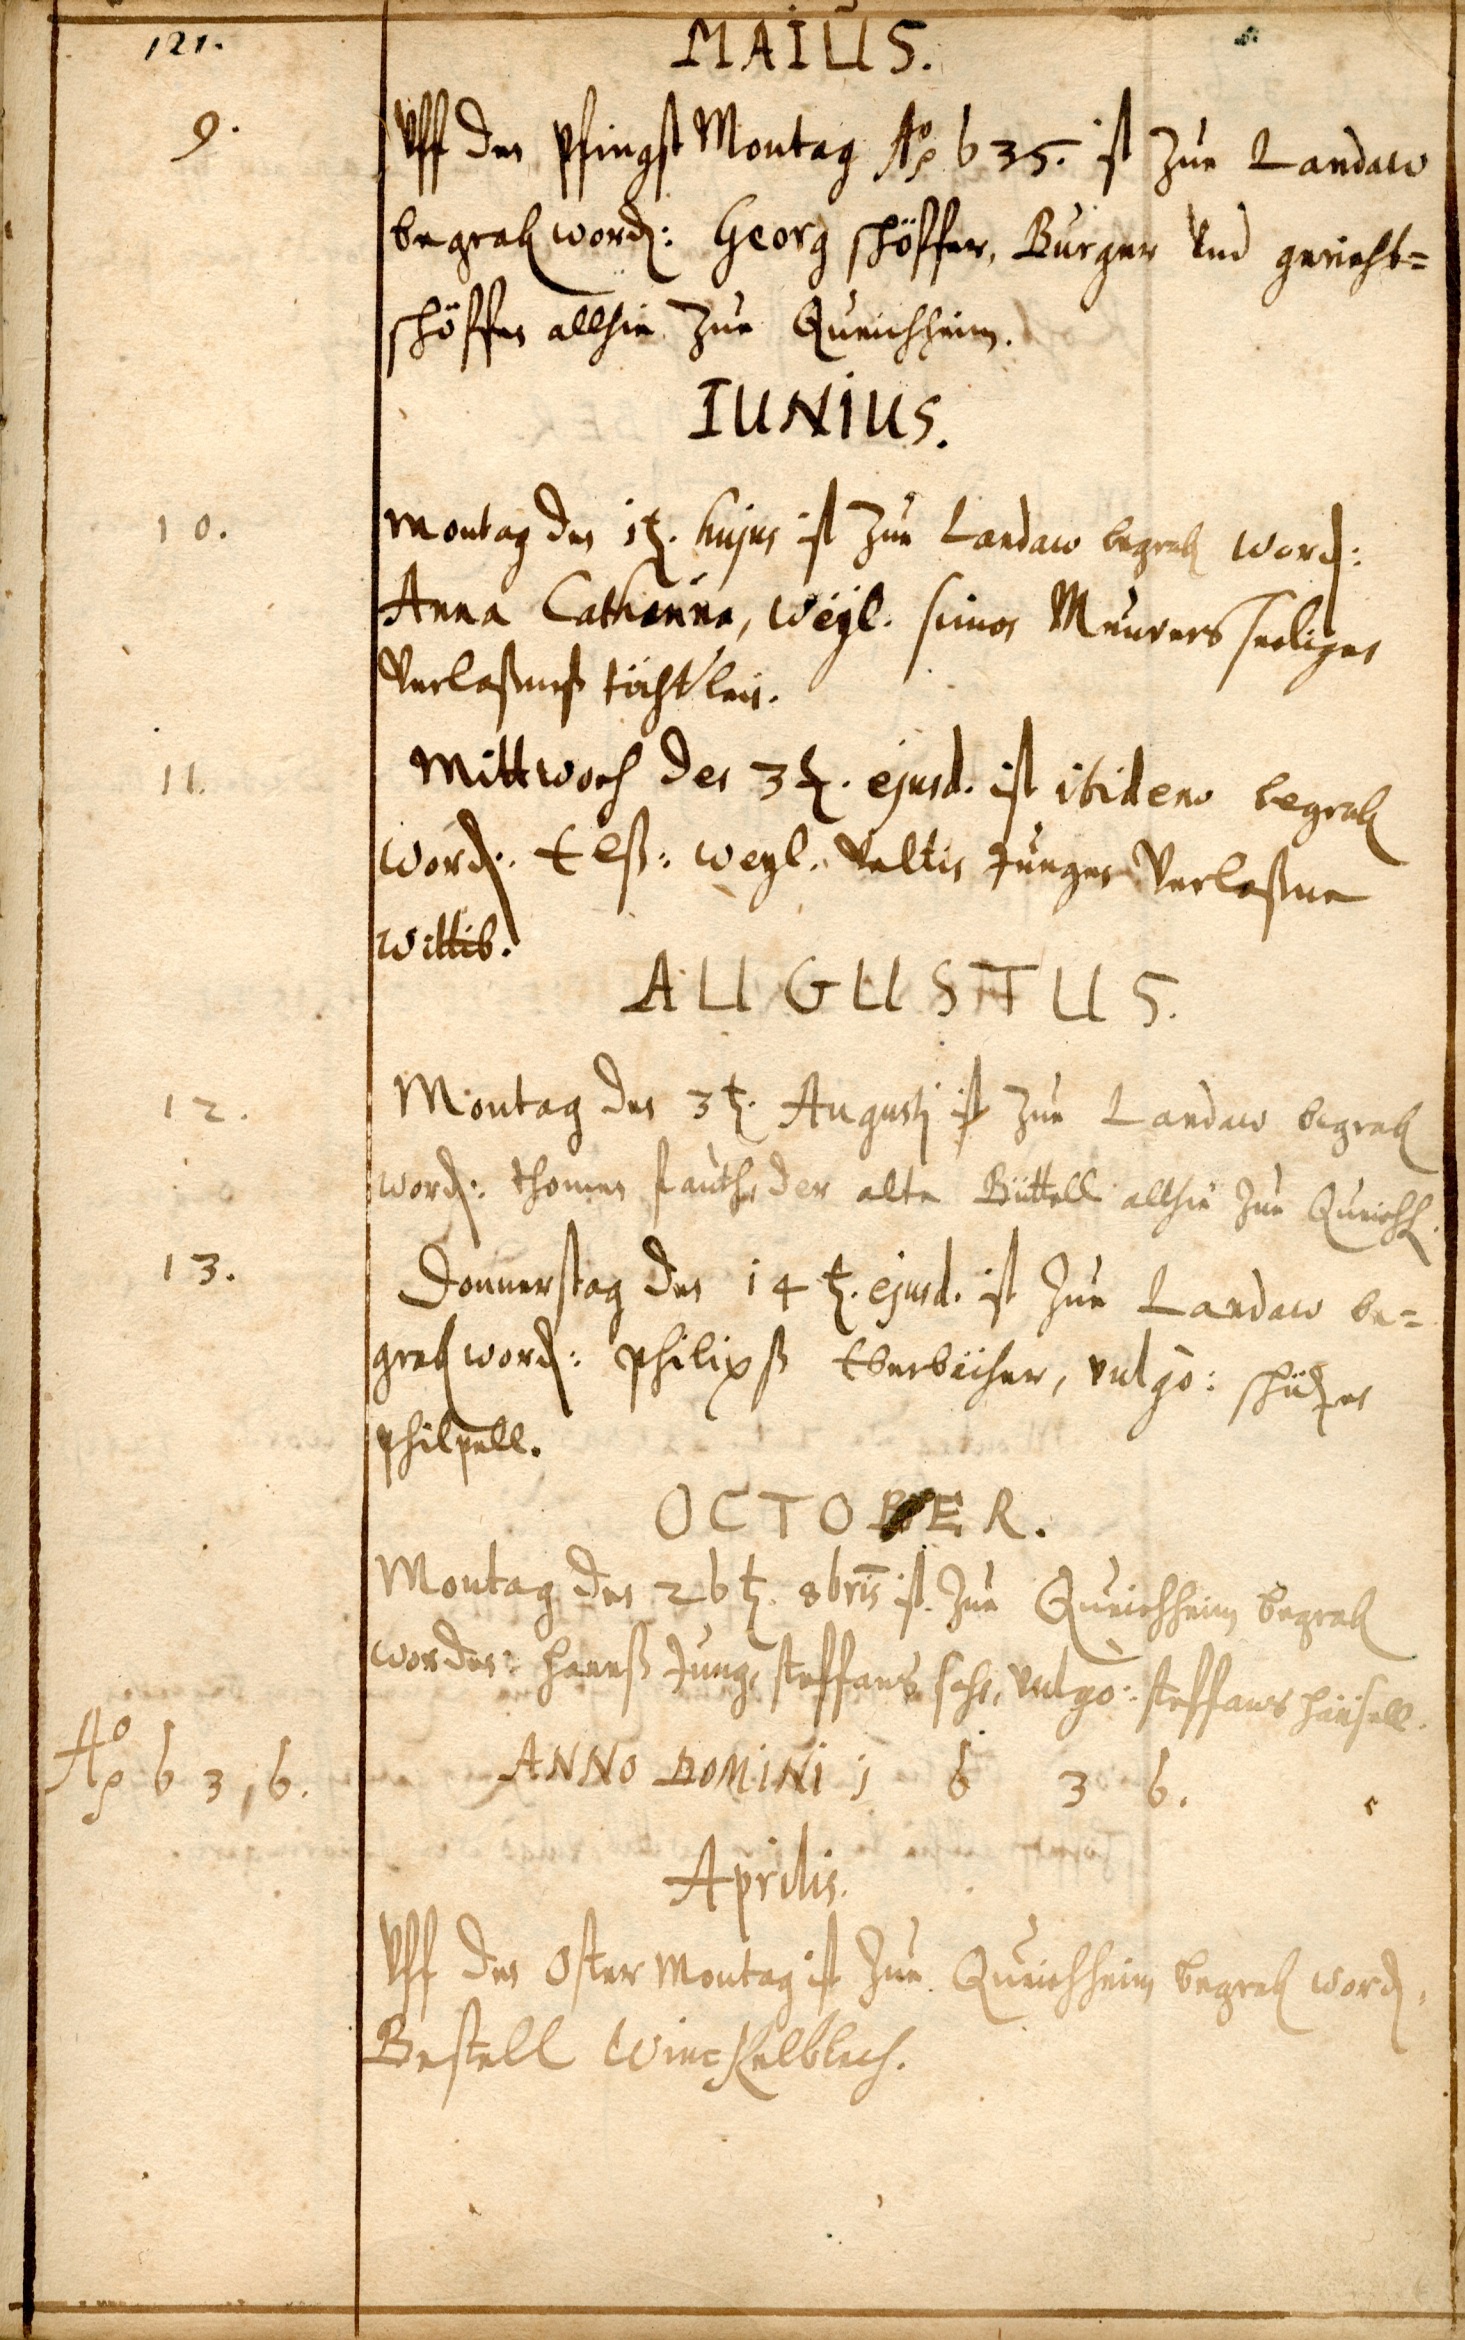 121.
MAIUS.
9.
Vff den Pfingst Montag Ao 635. ist Zue Landaw
begrab word: Georg schöffer, Burger Und gericht=
schöffen allhie Zue Queichheim.
IUNIUS.
10.
Montag den 1t. hujus ist Zue Landaw begrab word:
Anna Catharina, Weyl. simon Meurers seeligen
Verlaßnes töchtlein.
11.
Mittwoch den 3t. ejusd. ist ibidem begrab
word: Elß: weyl. Veltin Jungen Verlaßne
Wittib.
AUGUSTUS.
12.
Montag den 3t. Augusti ist Zue Landaw begrab
word: thomas fauth, der alte Büttell allhie Zue Queichh.
13.
Donnerstag den 14t. ejusd. ist Zue Landaw be=
grab word: Philipß Eberbächer, vulgo: schützen
philpell.
OCTOBER.
Montag den 26t. 8bris ist Zue Queichheim begrab
worden: Hanß Jung, steffans sohn, vulgo: steffans hänsell.
Ao 636.
ANNO DOMINI 1 6 3 6.
Aprilis.
Vff den Oster Montag ist Zue Queichheim begrab word,
Bestell Winckelblech.